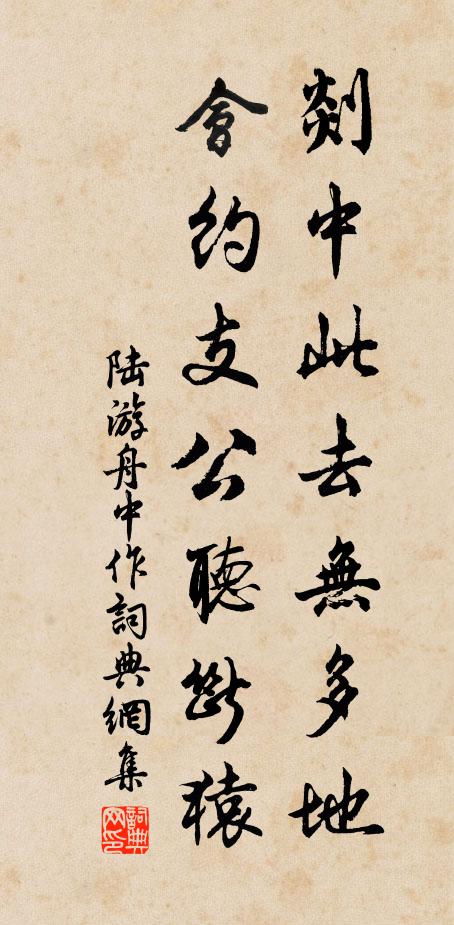 剡中此去無多地
會約支公聽斷猿
陆游舟中作詞典網集
詞典网印